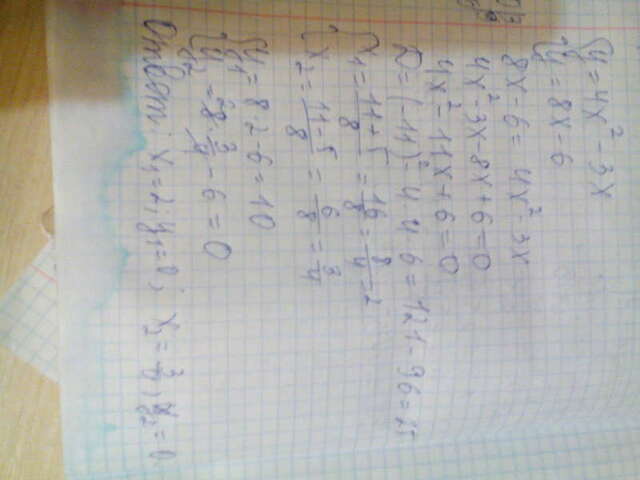 {y = 4x² - 3x
{y = 8x - 6
8x - 6 = 4x² - 3x
4x² - 3x - 8x + 6 = 0
4x² - 11x + 6 = 0
D = (-11)² - 4·4·6 = 121 - 96 = 25
{x₁ = (11+5)/8 = 16/8 = 2
{x₂ = (11-5)/8 = 6/8 = 3/4
{y₁ = 8·2 - 6 = 10
{y₂ = 8·3/4 - 6 = 0
Ответ: x₁ = 2; y₁ = 0; x₂ = 3/4; y₂ = 0